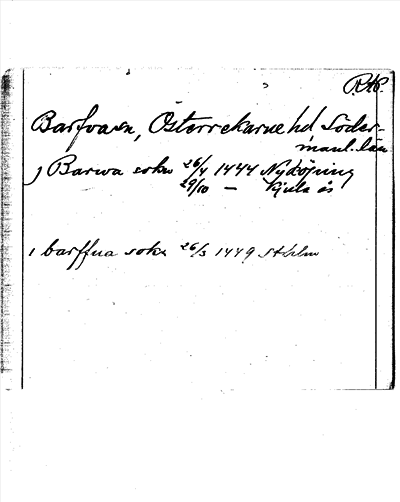 RAP.
Barfvaen, Österrekarne hd Söder-
manl. län
J Barwa sokn 26/4 1444 Nyköping
29/10 — Kjula ås
i barffua sokn 26/3 1449 Sthlm